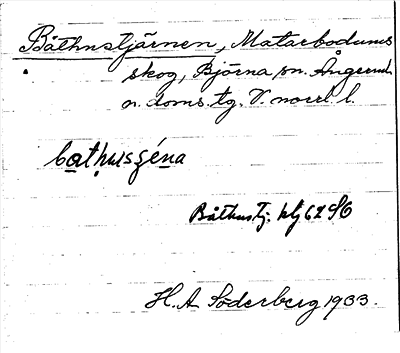 Båthustjärnen, Matarbodums
skog, Björna sn. Ångerml.
n. doms. tg. V. norrl. l.
Båthustj. blg 62 SO
H. A. Söderberg 1933.